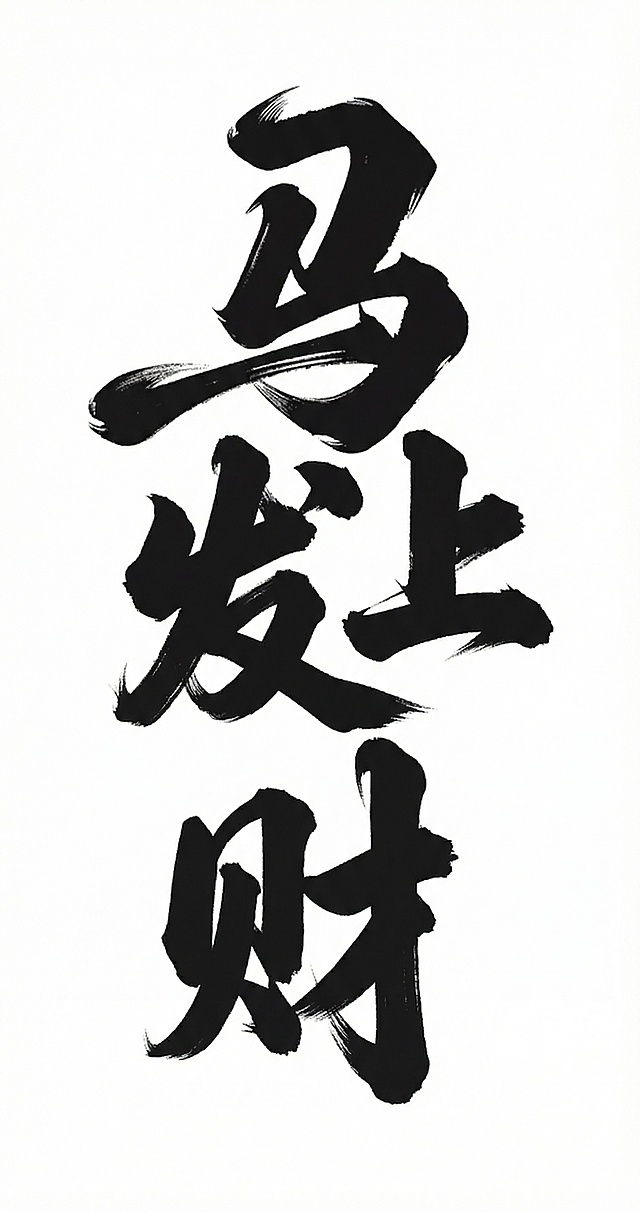 马上发财